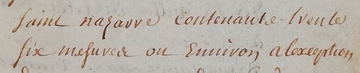 saint nazarre contenante trente
six mesures ou Environ alexception